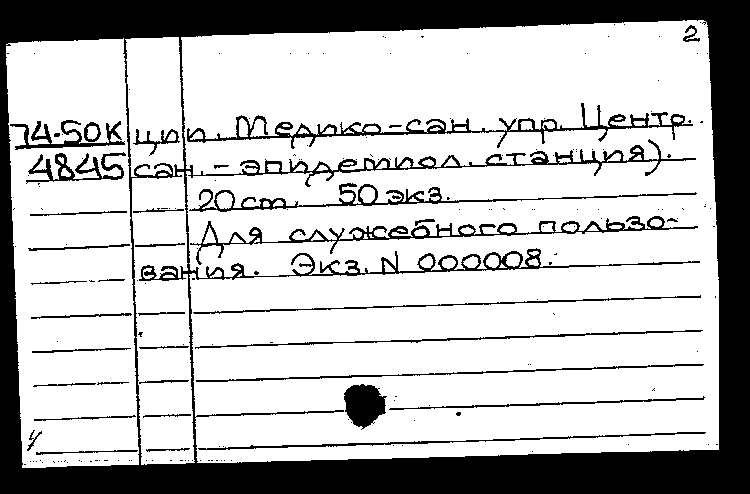 2
74-50К ции. Медико-сан. упр. Центр.
4845 сан.-эпидемиол. станция).
20 ст. 50 экз.
Для служебного пользо-
вания. Экз. N 000008.